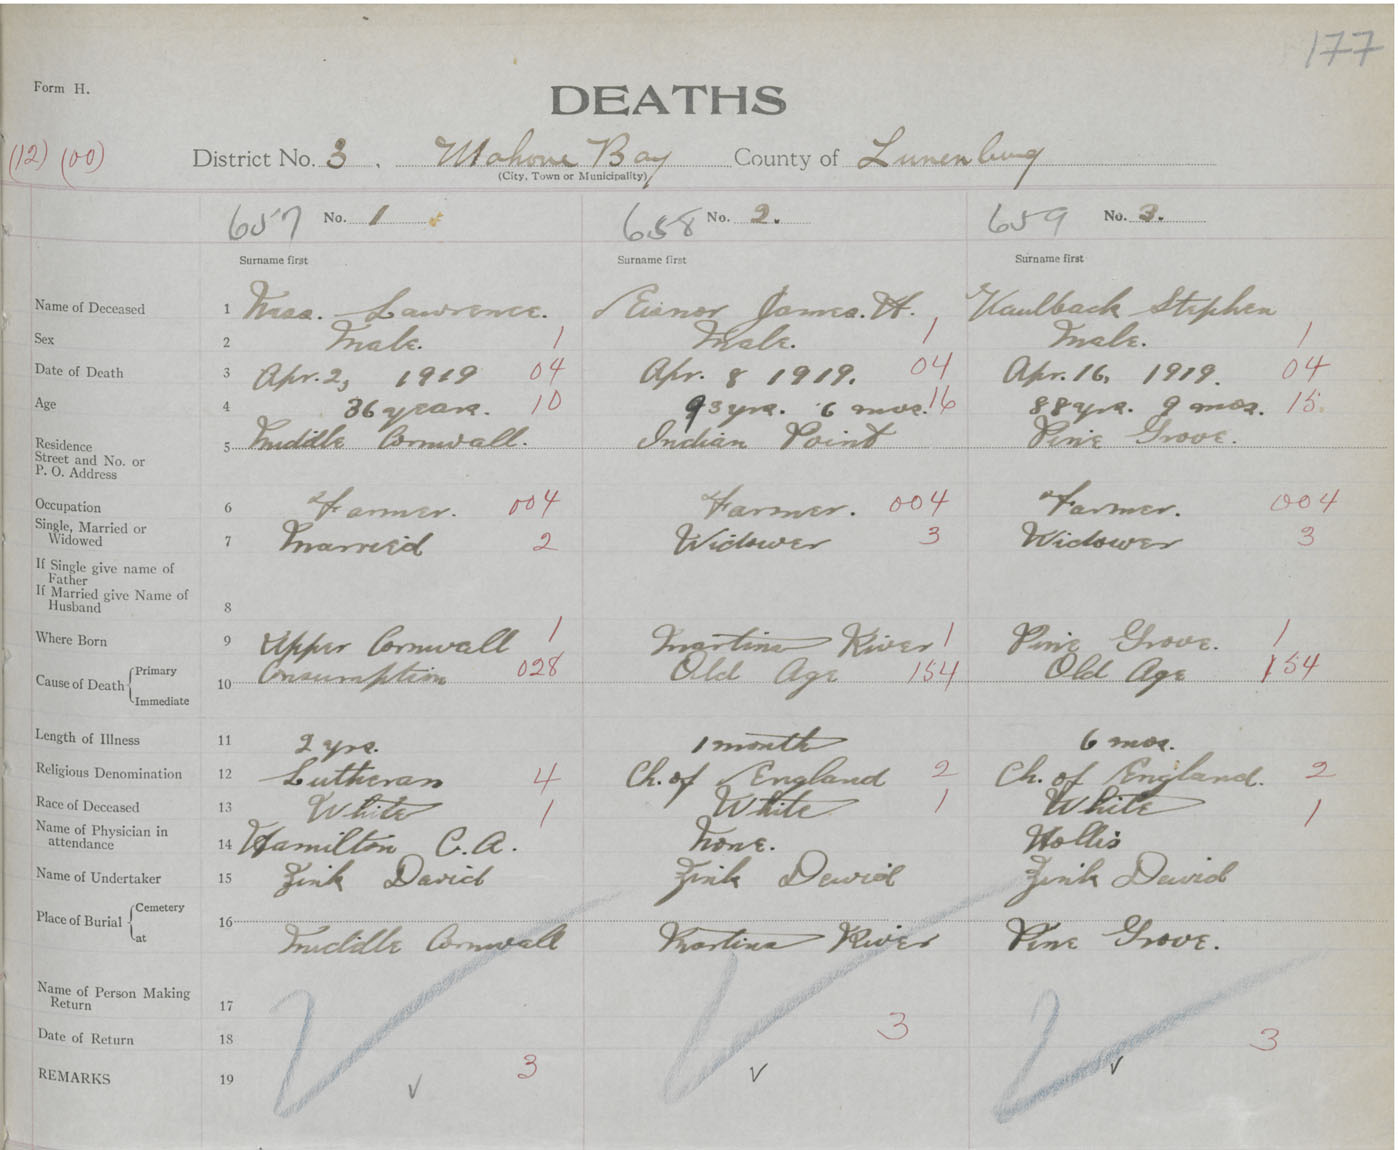 177
Form H.
DEATHS
(12) (00)
District No. 3. Mahone Bay County of Lunenburg
(City, Town or Municipality)
657 No. 1 658 No. 2. 659 No. 3.
Surname first Surname first Surname first
Name of Deceased 1 Lawrence. James. H. Kaulback Stephen
Sex 2 Male. 1 Male. 1 Male. 1
Date of Death 3 Apr. 2, 1919 04 Apr. 8 1919. 04 Apr. 16, 1919. 04
Age 4 36 years. 10 93 yrs. 6 mos. 16 88 yrs. 9 mos. 15
Residence
Street and No. or
P. O. Address
5 Middle Cornwall. Indian Point Pine Grove.
Occupation 6 Farmer. 004 Farmer. 004 Farmer. 004
Single, Married or
Widowed
7 Married 2 Widower 3 Widower 3
If Single give name of
Father
If Married give Name of
Husband
8
Where Born 9 Upper Cornwall 1 Martins River 1 Pine Grove. 1
Cause of Death Primary
Immediate
10 Consumption 028 Old Age 154 Old Age 154
Length of Illness 11 2 yrs. 1 month 6 mos.
Religious Denomination 12 Lutheran 4 Ch. of England 2 Ch. of England. 2
Race of Deceased 13 White 1 White 1 White 1
Name of Physician in
attendance
14 Hamilton C. A. None. Hollis
Name of Undertaker 15 Zink David Zink David Zink David
Place of Burial Cemetery
at
16 Middle Cornwall Martins River Pine Grove.
Name of Person Making
Return
17
Date of Return 18 3 3
REMARKS 19 3